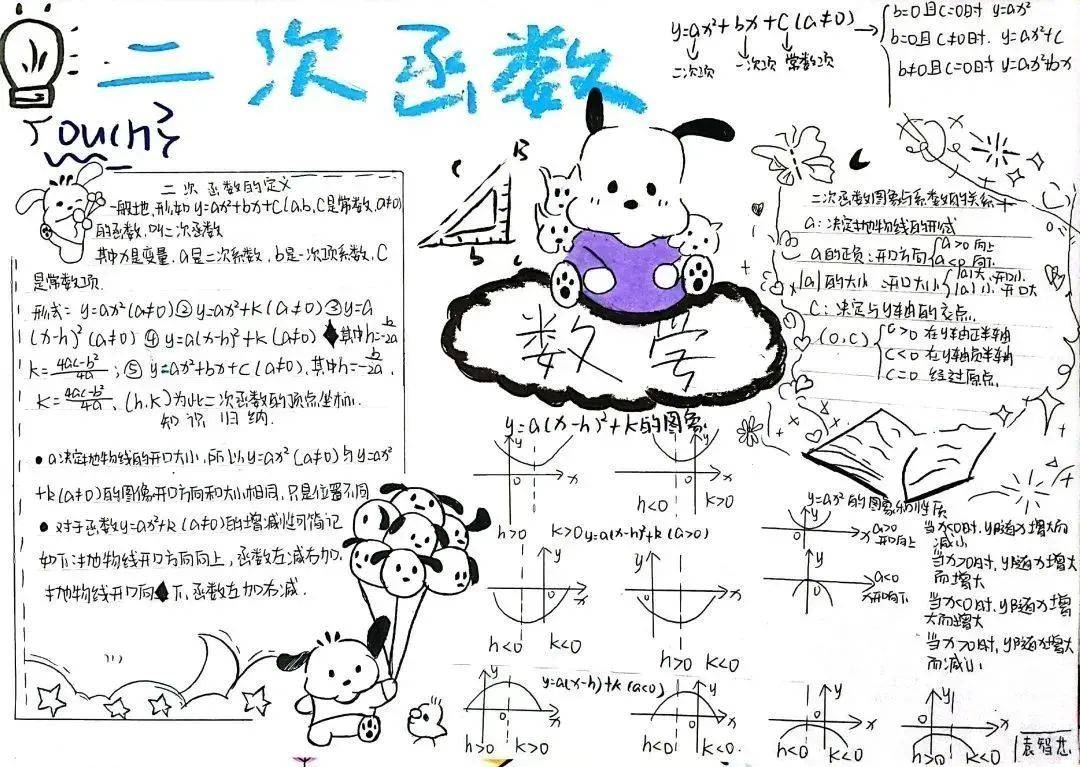 二次函数
Touch
y=ax²+bx+C(a≠0)
二次项 一次项 常数项
b=0且C=0时 y=ax²
b=0且C≠0时. y=ax²+C
b≠0且C=0时 y=ax²+bx
二次函数的定义
一般地,形如y=ax²+bx+C(a,b,C是常数,a≠0)
的函数,叫二次函数
其中x是变量,a是二次系数,b是一次项系数,C
是常数项.
形式: y=ax²(a≠0)②y=ax²+k(a≠0)③y=a
(x-h)²(a≠0)④y=a(x-h)²+k(a≠0) 其中h=-b/2a
k=4ac-b²/4a;⑤y=ax²+bx+C(a≠0),其中h=-b/2a,
K=4ac-b²/4a,(h,K)为此二次函数的顶点坐标.
知识归纳
●a决定抛物线的开口大小,所以y=ax²(a≠0)与y=ax²
+k(a≠0)的图像开口方向和大小相同,只是位置不同
●对于函数y=ax²+k(a≠0)的增减性可简记
如下:抛物线开口方向向上,函数左减右加.
抛物线开口向下,函数左加右减.
B
c
b C
数学
二次函数图象与系数的关系
a:决定抛物线的形式
a的正负:开口方向
a>0向上
a<0向下
|a|的大小:开口大小
|a|大,开口小
|a|小,开口大
C:决定与y轴的交点.
(0,C)
C>0 在y轴正半轴
C<0 在y轴负半轴
C=0 经过原点.
y=a(x-h)²+k的图象
y
0
x
h>0 K>0
y
0
x
h<0 K>0
y=a(x-h)²+k(a>0)
0
x
h<0 K<0
0
x
h>0 K<0
y=a(x-h)+k(a<0)
y
0
x
h>0 K>0
y
0
x
h<0 K<0.
y
0
x
h<0 K<0
y
0
x
h>0 K<0
y=ax²的图象和性质
0
x
a>0
开口向上
当x<0时,y随x增大而
减小
当x>0时,y随x增大
而增大
0
a<0
x开口向下
当x<0时,y随x增
大而增大
当x>0时,y随x增大
而减小
袁智